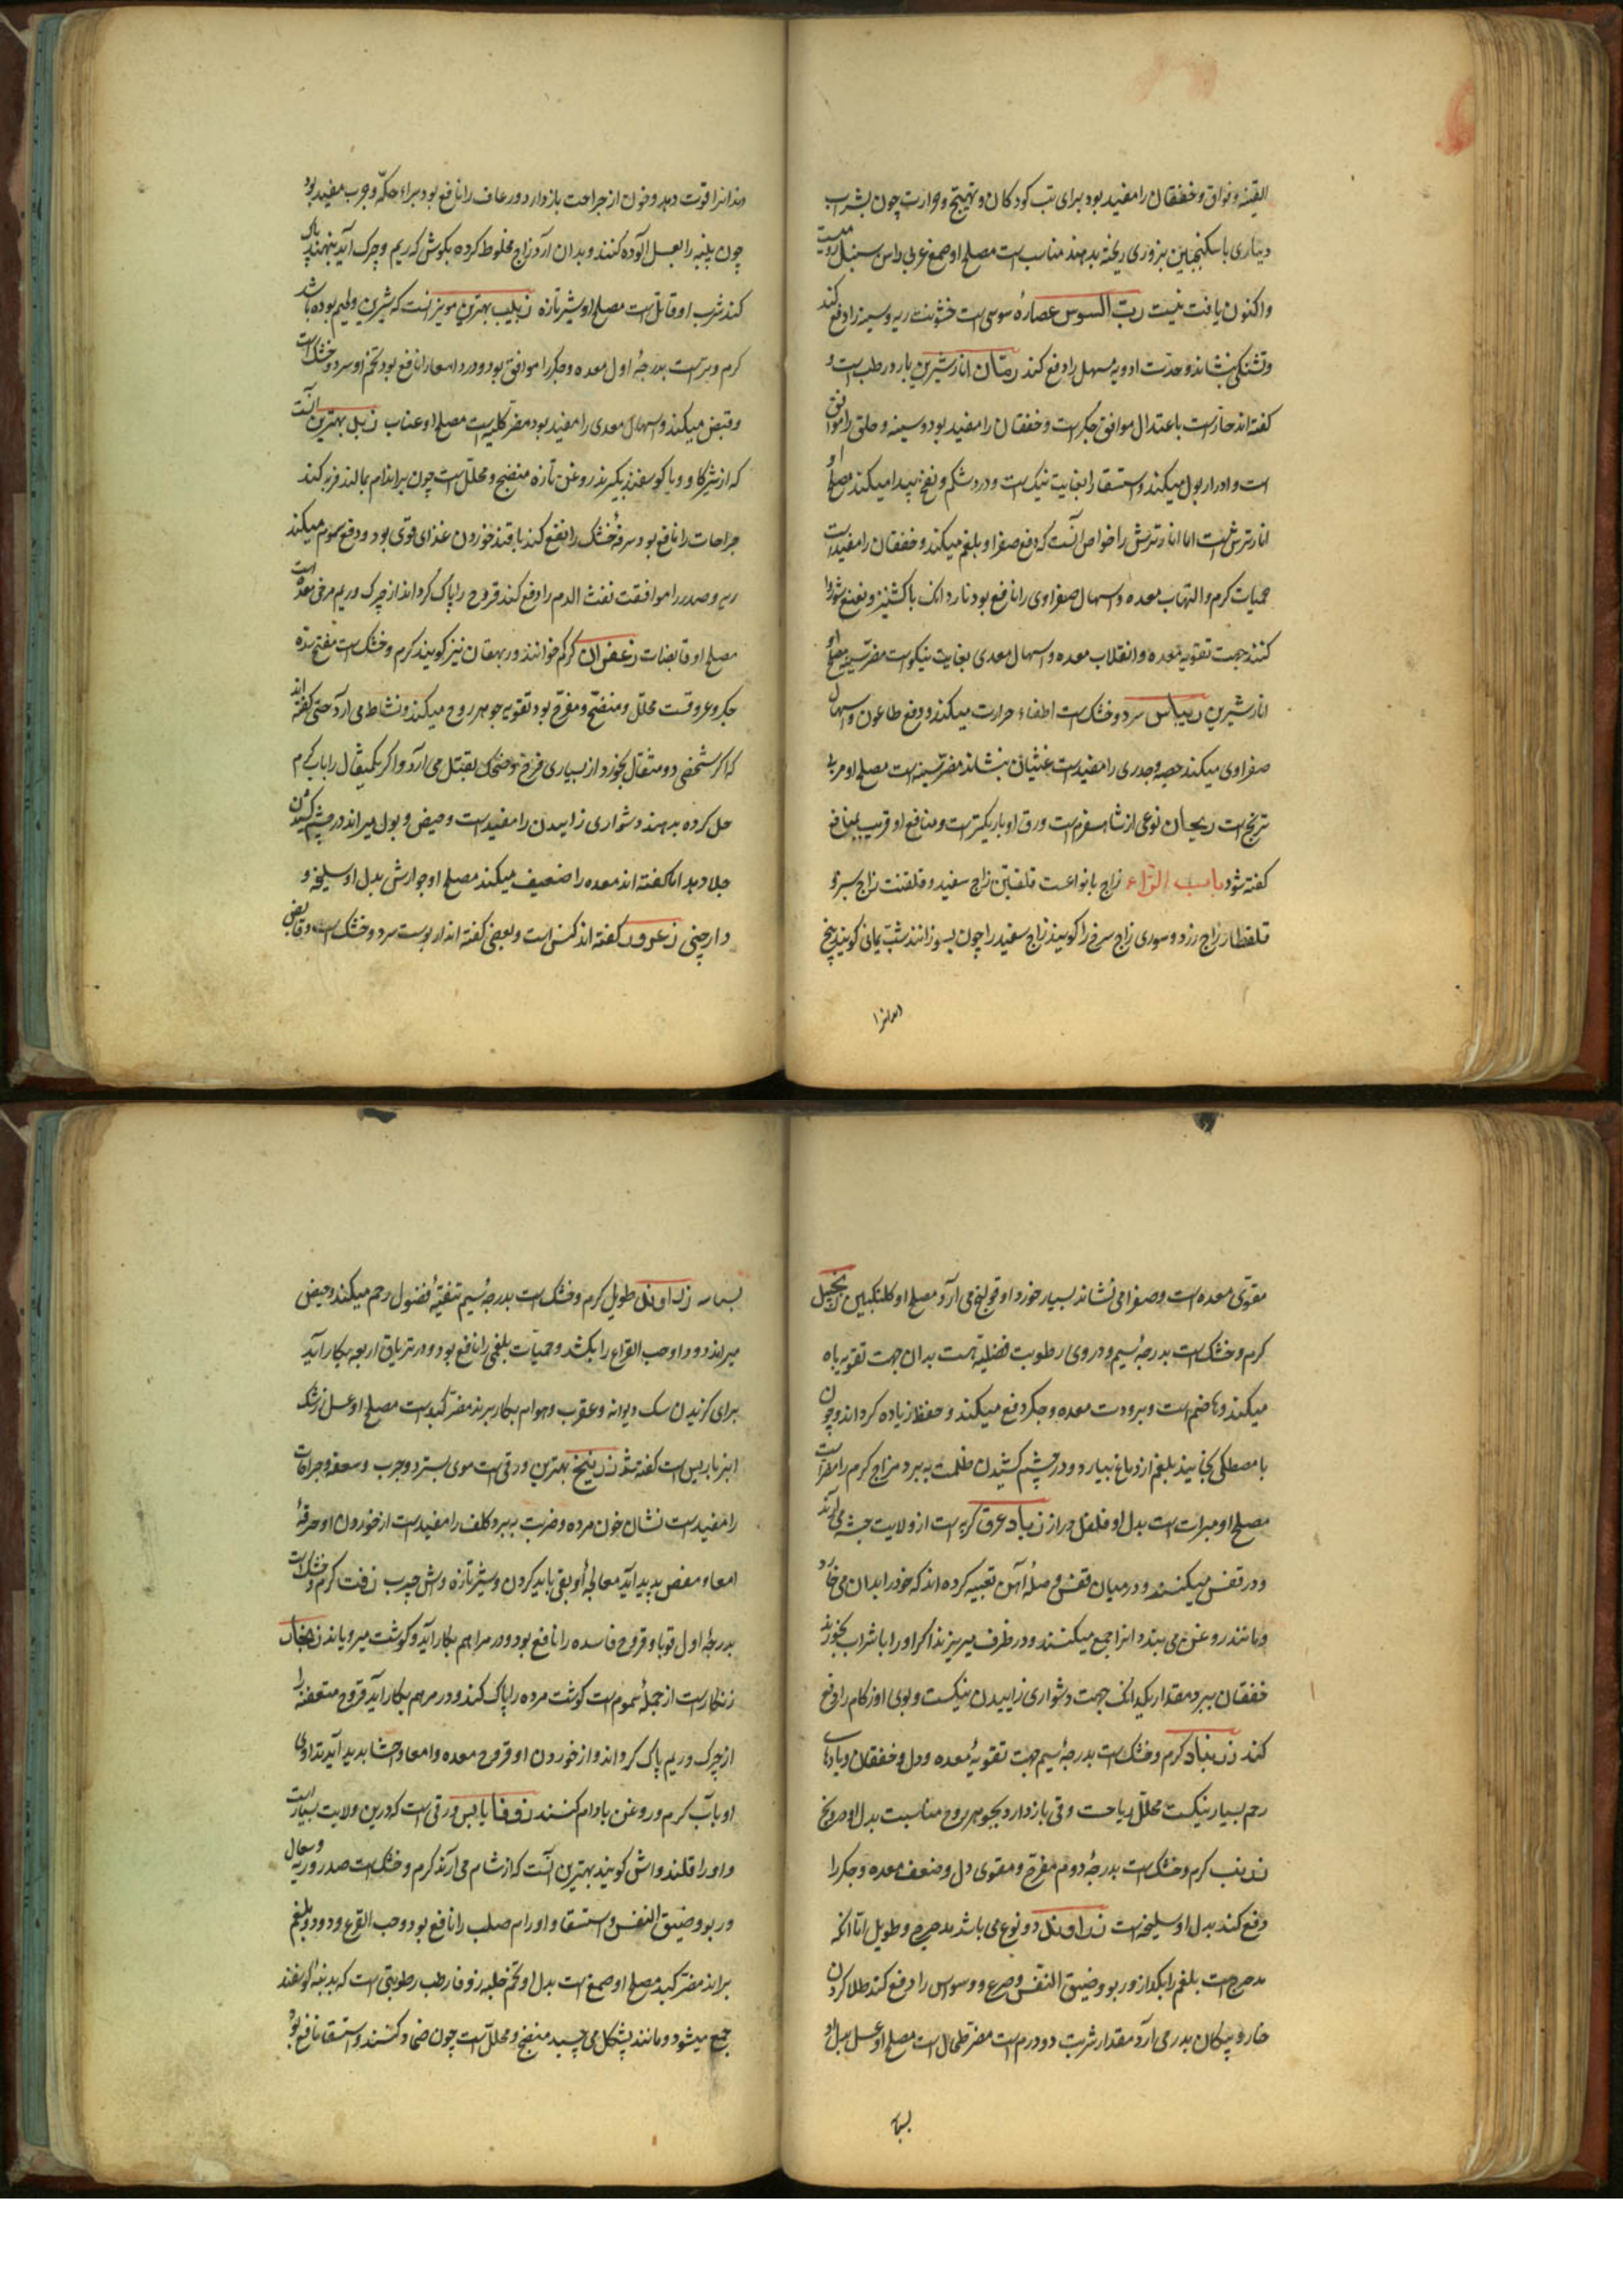 القیه و فواق و خفقان را مفید بود برای تب کودکان و تهیج و حرارت چون بشراب
دیناری با سکنجبین بزوری ریخته بدهند مناسب است مصلح او صمغ عربی داس سنبل رومیست
واکنون یافت نیست رب السوس عصاره سوسی است خشونت ریه و سینه را دفع کند
وتشنکی بنشاند و حدت ادویه مسهل را دفع کند رمّان انار شیرین بارد و رطب است و
کفته اند حارست باعتدال موافق جکر است و خفقان را مفید بود و سینه و حلق را موافق
است و ادرار بول میکند و استسقا را بغایت نیک است و درد شکم و نفخ پیدا میکند مصلح او
انار ترش است اما انار ترش را خواص آنست که دفع صفرا و بلغم میکند و خفقان را مفیدست
حمیات کرم و التهاب معده و اسهال صفراوی را نافع بود ناردانک با کشنیز و نعنع شوربا
کنند جهت تقویه معده و انقلاب معده و اسهال معدی بغایت نیکوست مضر سینه مصلح او
انار شیرین ریباس سرد و خشک است اطفاء حرارت میکند و دفع طاعون و اسهال
صفراوی میکند حصبه و جدری را مفیدست غثیان بنشاند مضر سینه است مصلح او مربا
ترنج است ریحان نوعی از شاهسفرم است ورق او باریکترست و منافع او قریب بمنافع
کفته شود باب الزاء زاج بانواعست قلقیین زاج سفید و قلقنت زاج سبز و
قلقطار زاج زرد و سوری زاج سرخ را کویند زاج سفید را چون بسوزانند شب یمانی کویند بیخ
دندانرا
دندانرا قوت دهد و خون از جراحت بازدارد و رعاف را نافع بود برای حکه و جرب مفید بود
چون پلیته را بعسل آلوده کنند و بدان آرد زاج مخلوط کرده بکوش که ریم و چرک آید بنهند پاک
کند شرب او قاتلست مصلح او شیر تازه زبیب بهترین مویز آنست که شیرین و لحیم بوده باشد
کرم و ترست بدرجهٔ اول معده و جکر را موافق بود و درد امعا را نافع بود تخم او سرد و خشک است
و قبض میکند و اسهال معدی را مفید بود مضر کلیه است مصلح او عناب زبل بهترین آنست
که از شیر کاو و یا کوسفند بکیرند روغن تازه منضج و محلل است چون بر اندام بمالند فربه کند
جراحات را نافع بود سرفهٔ خشک را نفع کند با قند خوردن غذای قوی بود و دفع سموم میکند
ریه و صدر را موافقت نفث الدم را دفع کند قروح را پاک کرداند از چرک و ریم مرخی معده است
مصلح او قابضات زعفران کرکم خوانند و ریهقان نیز کویند کرم و خشک است مفتح سده
جکر و عروقست محلل و منضج و مفرح بود تقویه جوهر روح میکند و نشاط می آرد حتی کفته اند
که اکر شخصی دو مثقال بخورد از بسیاری فرح و ضحک بقتل می آرد و اکر یکمثقال را باب کرم
حل کرده بدهند دشواری زاییدن را مفیدست و حیض و بول میراند در چشم کشیدن
جلا دهد اما کفته اند معده را ضعیف میکند مصلح او جوارش بدل او سلیخه و
دارچینی زعرور کفته اند کنس است و بعضی کفته اند اربوست سرد و خشک است و قابض
مقوی معده است و صفرا می نشاند بسیار خوردن او قولنج می آرد مصلح او کلنکبین زنجبیل
کرم و خشک است بدرجهٔ سیم و در وی رطوبت فضلیه هست بدان جهت تقویه باه
میکند و هاضم است و برودت معده و جکر دفع میکند و حفظ زیاده کرداند و چون
با مصطکی بخایند بلغم از دماغ بیارد و در چشم کشیدن ظلمت ببرد مزاج کرم را مضراست
مصلح او مبرات است بدل او فلفل دراز زباد عرق کربه است از ولایت حبشه می آرند
و در قفس میکنند و در میان قفس وصلهٔ آهن تعبیه کرده اند که خود را بدان می خارد
و مانند روغن می بندد انرا جمع میکنند و در ظرف میریزند اکر او را با شراب بخورند
خفقان ببرد مقدار یکدانک جهت دشواری زاییدن نیکست و بوی او زکام را دفع
کند زرنباد کرم و خشک است بدرجهٔ سیم جهت تقویهٔ معده و دل و خفقان و بادهای
رحم بسیار نیکست محلل ریاحست و قی بازدارد بجوهر روح مناسبت بدل او درونج
زرنب کرم و خشک است بدرجهٔ دوم مفرح و مقوی دل و ضعف معده و جکر را
دفع کند بدل او سلیخه است زراوند دو نوع می باشد مدحرج و طویل اما آنکه
مدحرجست بلغم را بکدازد و ربو و ضیق النفس و صرع و وسواس را دفع کند طلا کردن
خار و پیکان بدر می آرد مقدار شربت دو درم است مضر طحال است مصلح او عسل بدل او
بسباسه
بسباسه زراوند طویل کرم و خشک است بدرجهٔ سیم تنقیهٔ فضول رحم میکند و حیض
میراند دود و حب القرع را بکشد و حمیات بلغمی را نافع بود و در تریاق اربعه بکار آید
برای کزیدن سک دیوانه و عقرب و هوام بکار برند مضر کبدست مصلح او عسل زرشک
انبرباریس است کفته شد زرنیخ بهترین ورقی است موی بسترد و جرب و سعفه و جراحات
را مفیدست نشان خون مرده و ضربت ببرد و کلف را مفیدست از خوردن او حرقهٔ
امعا و مغص پدید آید معالجهٔ او بقی باید کردن و شیر تازه و آش چرب زفت کرم و خشک است
بدرجهٔ اول قوبا و قروح فاسده را نافع بود و در مراهم بکار آید و کوشت میرویاند زنجار
زنکارست از جملهٔ سموم است کوشت مرده را پاک کند و در مرهم بکار آید قروح متعفنه را
از چرک و ریم پاک کرداند و از خوردن او قروح معده و امعا و احشا پدید آید تداوی
او بآب کرم و روغن بادام کنند زوفا یابس ورقی است که درین ولایت بسیار است
و او را قلندواش کویند بهترین آنست که از شام می آرند کرم و خشک است صدر و ریه و سعال
و ربو و ضیق النفس و استسقا و اورام صلب را نافع بود و حب القرع و دود و بلغم
براند مضر کبد مصلح او صمغ است بدل او تخم حلبه زوفا رطب رطوبتی است که بدنبه کوسفند
جمع میشود و مانند پشکل می چسبد منضج و محللست چون ضماد کنند و استسقا نافع بود